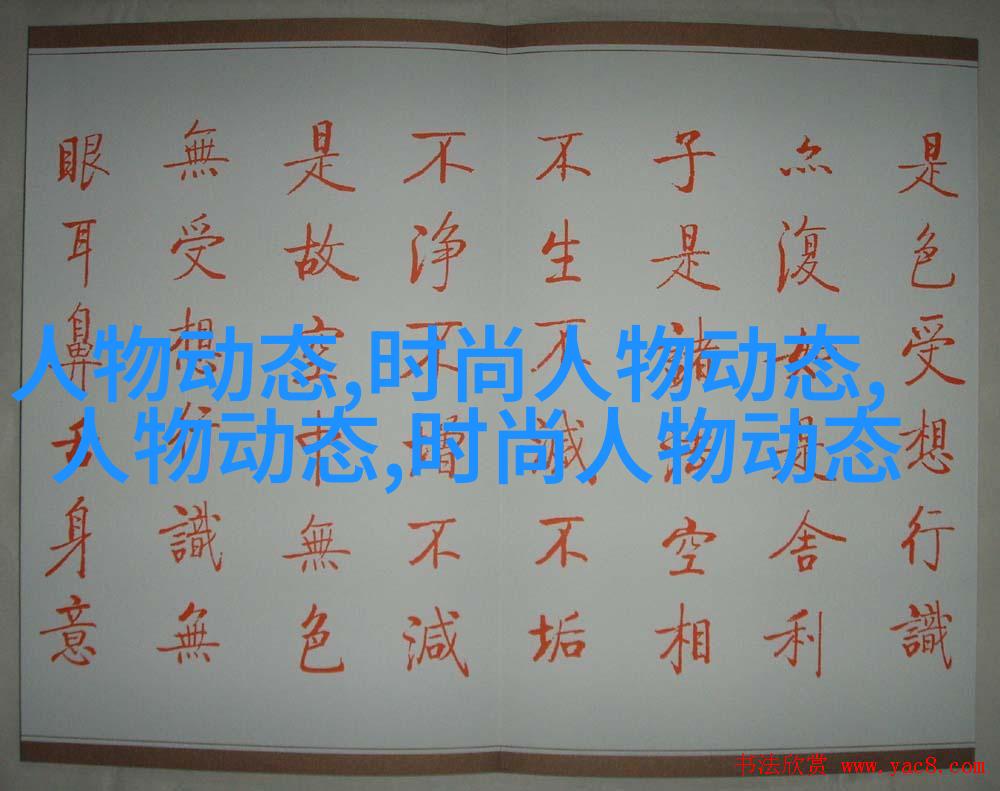 是色受想行識
亦復如是舍利
子是諸法空相
不生不滅不垢
不淨不增不減
是故空中無色
無受想行識無
眼耳鼻舌身意
人物动态,时尚人物动态,
人物动态,时尚人物动态
书法欣赏 www.yac8.com